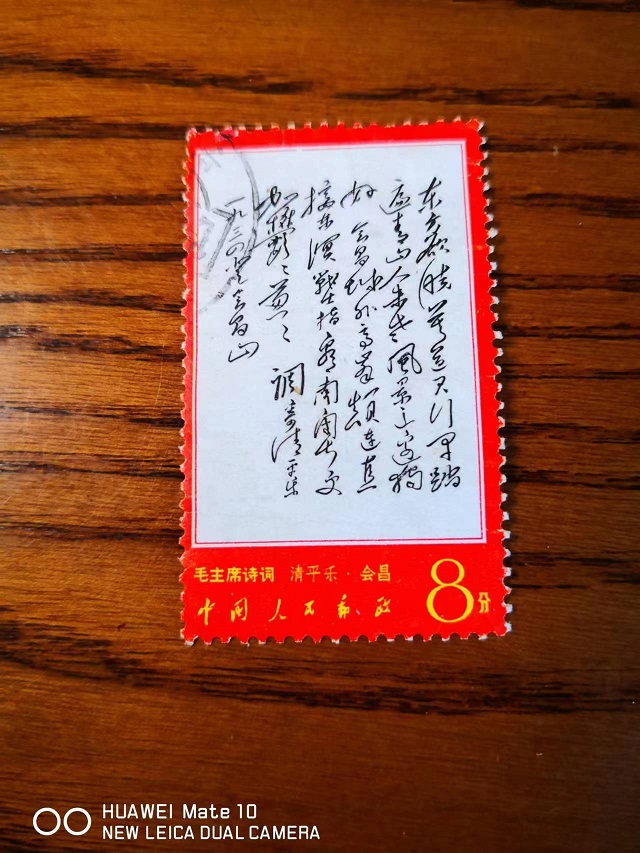 东方欲晓莫道君行早踏
遍青山人未老風景这边独
好会昌城外高峯顛連直
接东溟戰士指看南粤更
加鬱々葱々 調寄清平乐
一九三四登会昌山
毛主席诗词 清平乐·会昌
中国人民邮政 8分
HUAWEI Mate 10
NEW LEICA DUAL CAMERA